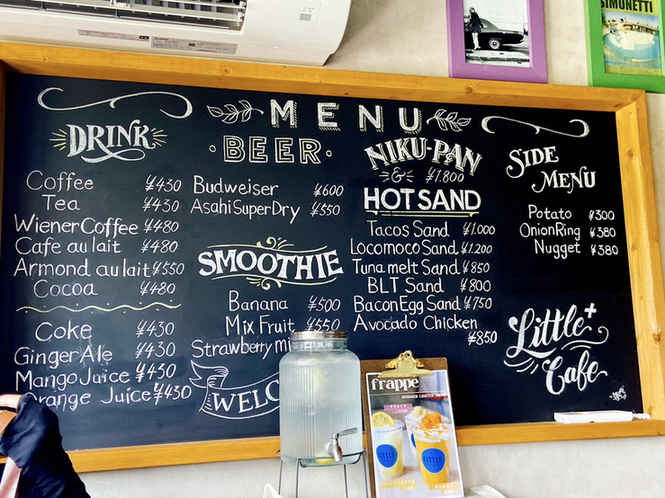 SIMONETTI
MENU
DRINK
Coffee ¥430
Tea ¥430
WienerCoffee ¥480
Cafe au lait ¥480
Armond au lait ¥550
Cocoa ¥480
Coke ¥430
GingerAle ¥430
Mango Juice ¥430
Orange Juice ¥430
BEER
Budweiser ¥600
AsahiSuperDry ¥550
SMOOTHIE
Banana ¥500
Mix Fruit ¥550
Strawberry
WELC
NIKU-PAN
& ¥1.800
HOT SAND
Tacos Sand ¥1.000
Locomoco Sand ¥1.200
Tuna melt Sand ¥850
BLT Sand ¥800
BaconEgg Sand ¥750
Avocado Chicken
¥850
SIDE
MENU
Potato ¥300
OnionRing ¥380
Nugget ¥380
Little+
Cafe
frappe
LITTLE
LITTLE